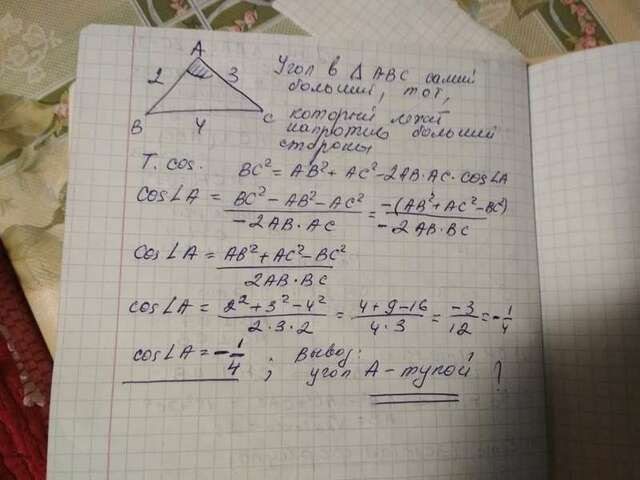 A
2 3
B 4 C
Угол в Δ ABC самий
больший, тот,
который лежит
напротив больший
стороны
Т. cos. BC² = AB² + AC² - 2AB·AC·cos∠A
cos∠A = BC² - AB² - AC² / -2AB·AC = -(AB² + AC² - BC²) / -2AB·BC
cos∠A = AB² + AC² - BC² / 2AB·BC
cos∠A = 2² + 3² - 4² / 2·3·2 = 4 + 9 - 16 / 4·3 = -3 / 12 = -1/4
cos∠A = -1/4 ; Вывод:
угол A - тупой